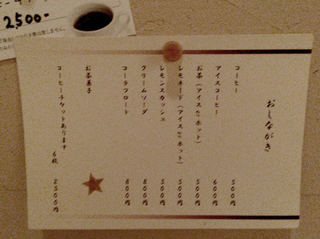 おしながき
コーヒー 500円
アイスコーヒー 600円
お茶(アイス or ホット) 500円
レモネード(アイス or ホット) 500円
レモンスカッシュ 500円
クリームソーダ 800円
コーラフロート 800円
お茶菓子
コーヒーチケットあります 6枚 2500円
2,500-